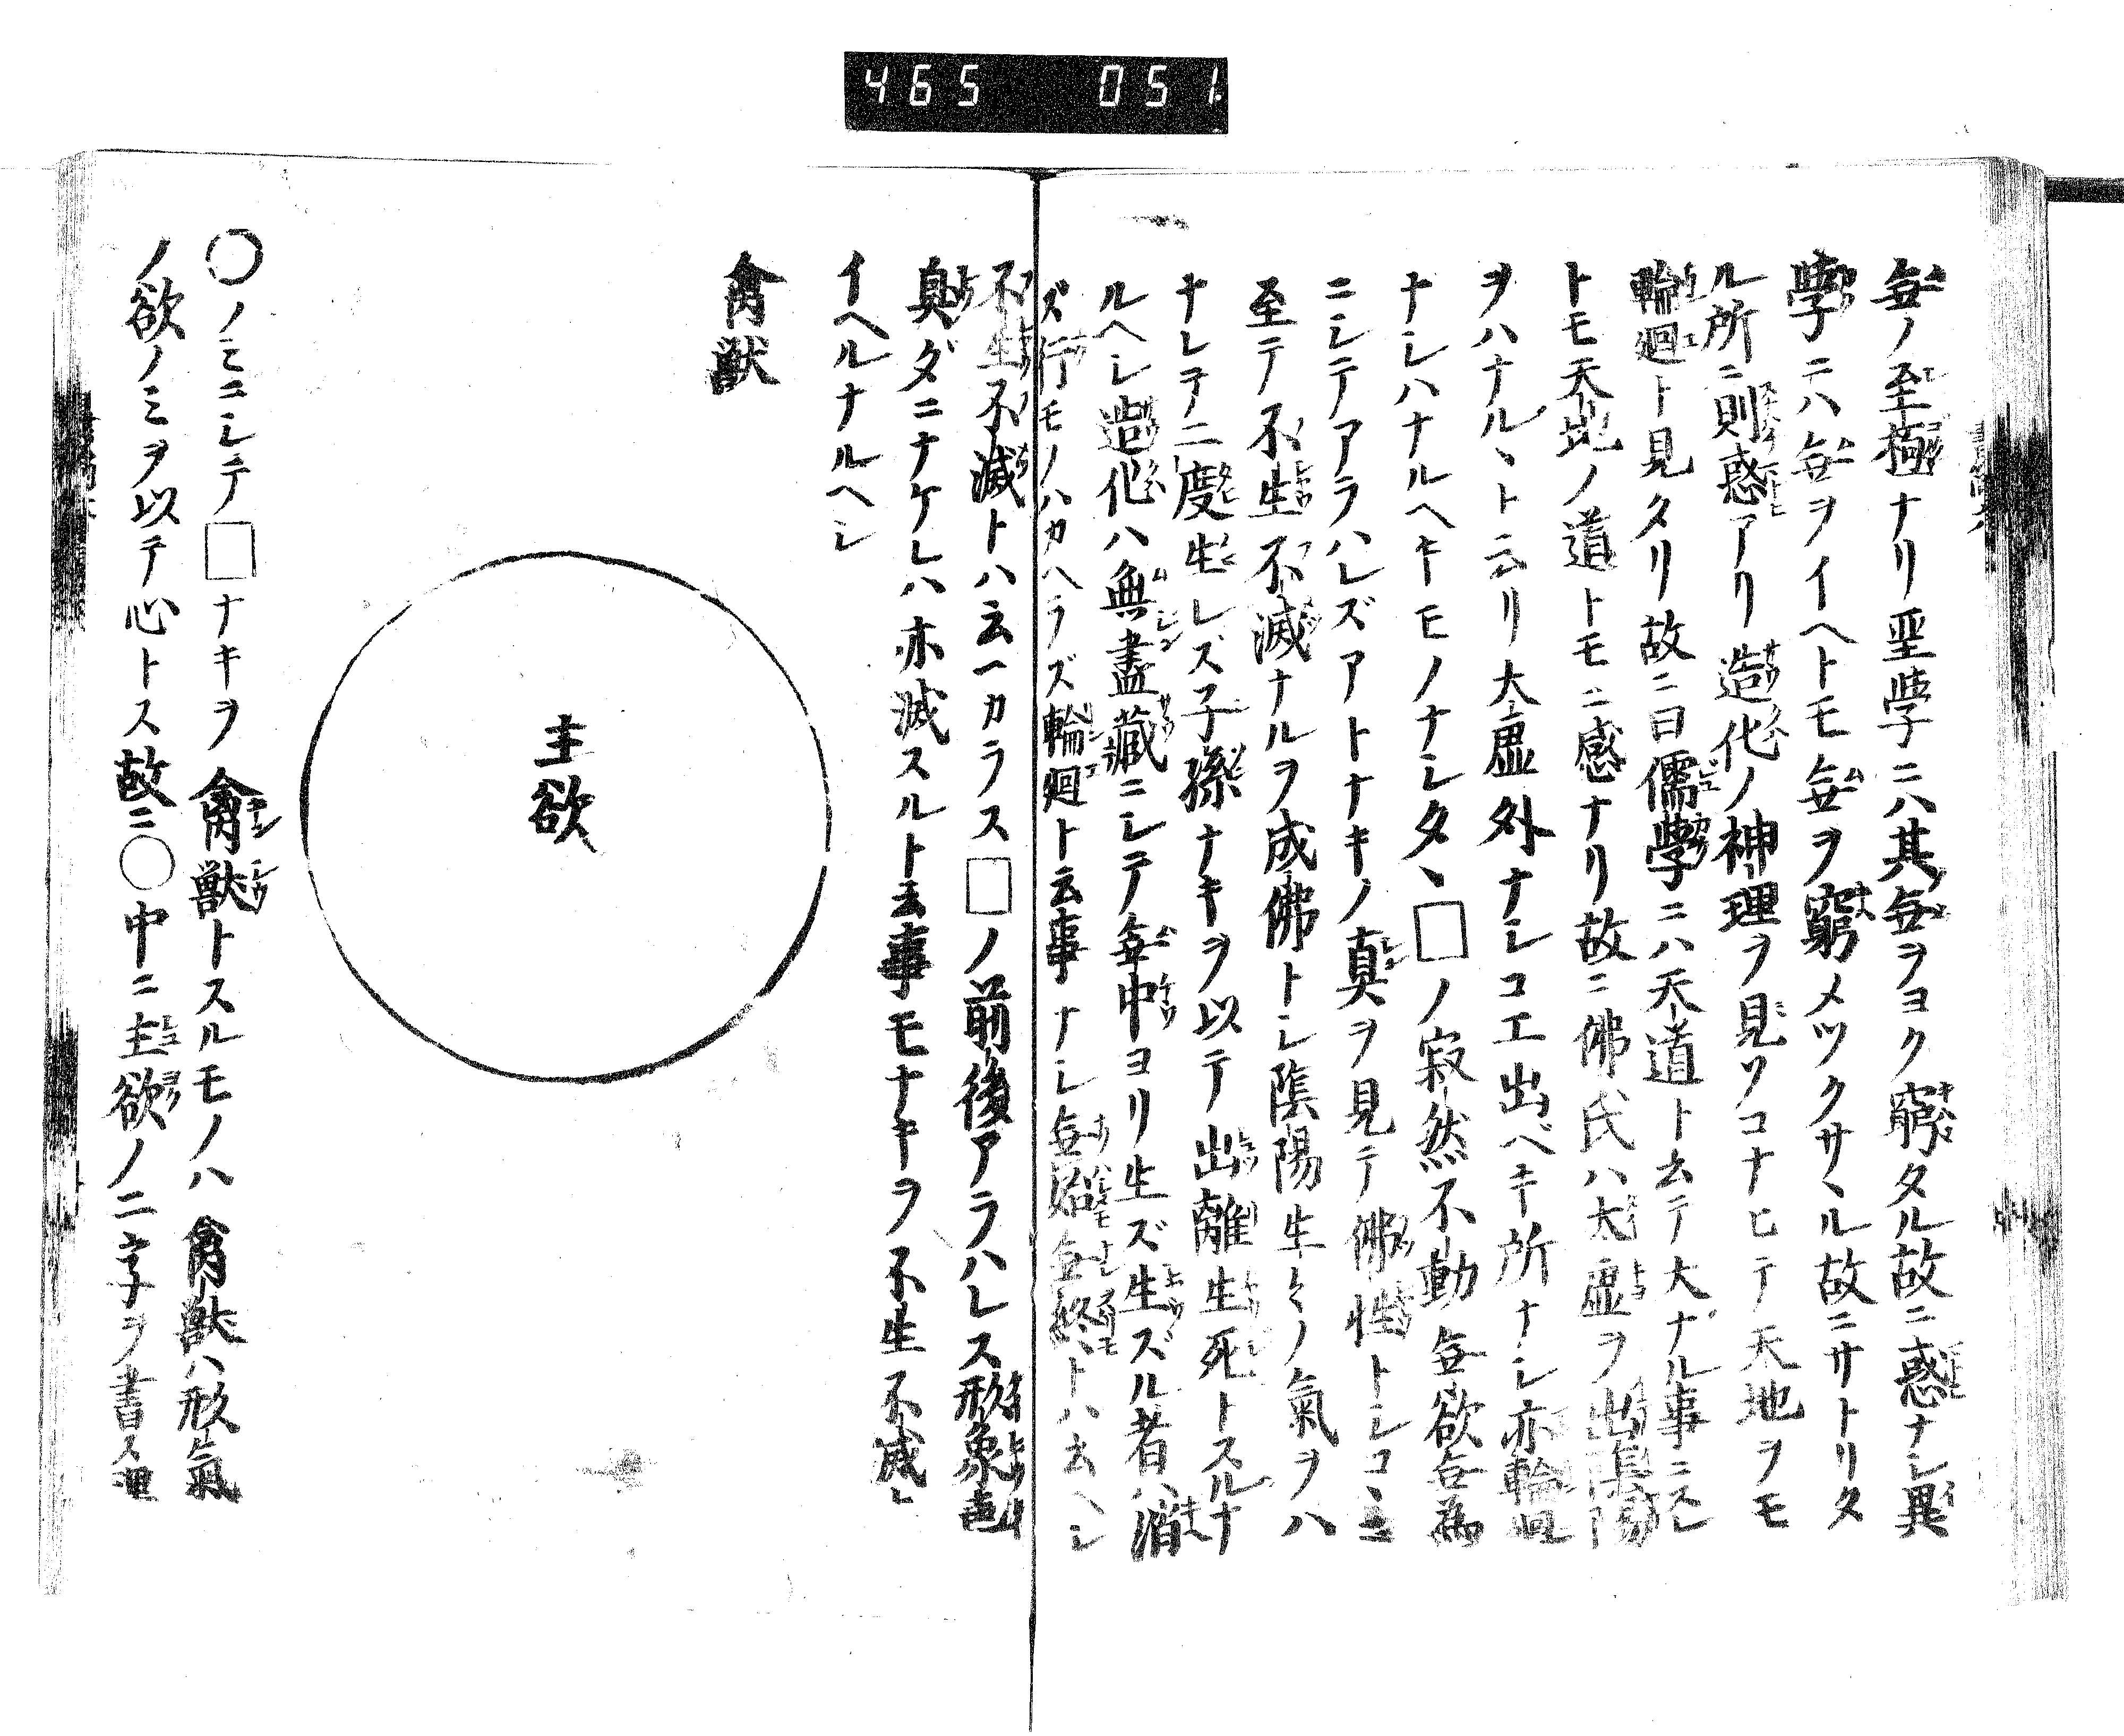 465 051
無ノ至極ナリ聖学ニハ其無ヲヨク窮タル故ニ惑ナシ異
学ニハ無ヲイヘトモ無ヲ窮メツクサヽル故ニサトリタ
ル所ニ則惑アリ造化ノ神理ヲ見ソコナヒテ天地ヲモ
輪廻ト見タリ故ニ曰儒学ニハ天道ト云テ大ナル事ニスレ
トモ天此ノ道トモニ惑ナリ故ニ佛氏ハ太虚ヲ出陰陽
ヲハナルヽト云リ太虚外ナシコエ出ベキ所ナシ亦輪廻
ナシハナルヘキモノナシタヽ□ノ寂然不動無欲無為
ニシテアラハレズアトナキノ真ヲ見テ佛性トシコヽニ
至テ不生不滅ナルヲ成佛トシ陰陽生〻ノ氣ヲハ
ナレテ二度生レズ子孫ナキヲ以テ出離生死トスルナ
ルヘシ造化ハ無盡蔵ニシテ無中ヨリ生ズ生ズル者ハ消
ズ行モノハカヘラズ輪廻ト云事ナシ無始無終トハ云ヘシ
不生不滅トハ云ヘカラス□ノ前後アラハレス形象声
臭ダニナケレハ亦滅スルト云事モナキヲ不生不滅ト
イヘルナルヘシ
禽獣
主欲
○ノミニシテ□ナキヲ禽獣トスルモノハ禽獣ハ形氣
ノ欲ノミヲ以テ心トス故ニ○中ニ主欲ノ二字ヲ書ス理